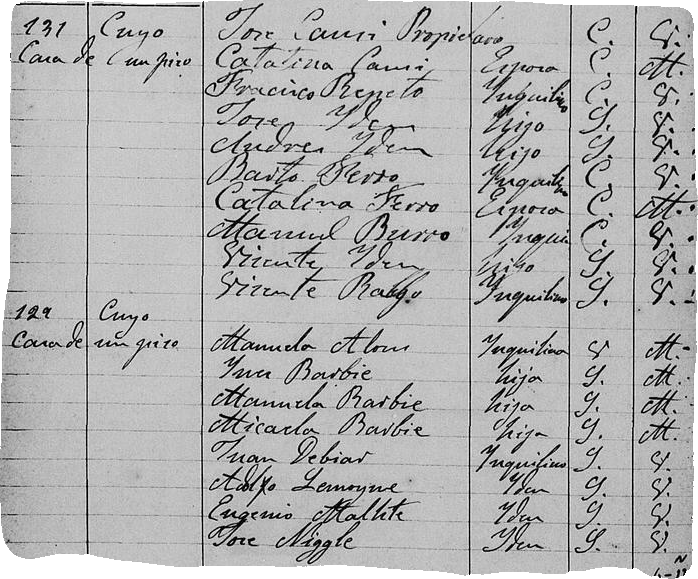 131 Cuyo Jose Causi Propietario C. V.
Casa de un piso Catalina Causi Esposa C. M.
Fracisco Reneto Inquilino C. V.
Jose Idem hijo S. V.
Andres Idem hijo S. V.
Barto Ferro Inquilino C. V.
Catalina Ferro Esposa C. M.
Manuel Burro Inquili C. V.
Vicente Idem hijo S. V.
Vicente Inquilino S. V.
129 Cuyo
Casa de un piso Manuela Inquilina V M.
Ines Barbie hija S. M.
Manuela Barbie hija S. M.
Micaela Barbie hija S. M.
Juan Debiar Inquilino S. V.
Adolfo Lemoyne Idem S. V.
Eugenio Idem S. V.
Jose Niggle Idem S. V.